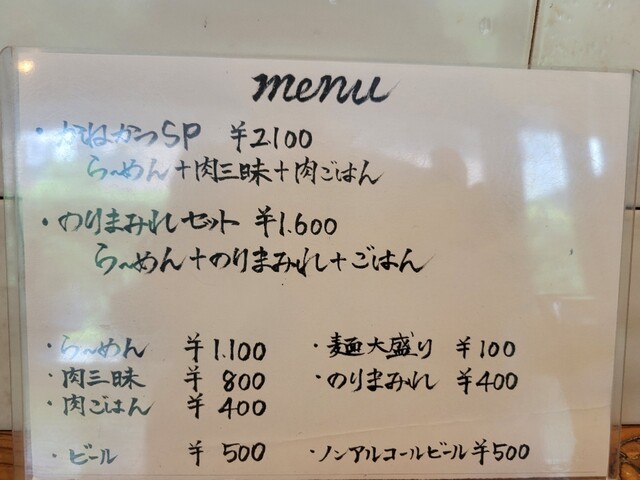 menu
・かねかつSP ¥2100
ら〜めん+肉三昧+肉ごはん
・のりまみれセット ¥1.600
ら〜めん+のりまみれ+ごはん
・ら〜めん ¥1.100 ・麺大盛り ¥100
・肉三昧 ¥800 ・のりまみれ ¥400
・肉ごはん ¥400
・ビール ¥500 ・ノンアルコールビール¥500